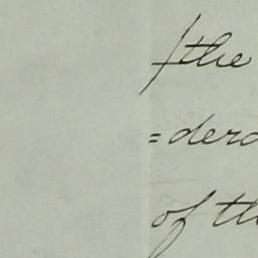 the
=dera
of th